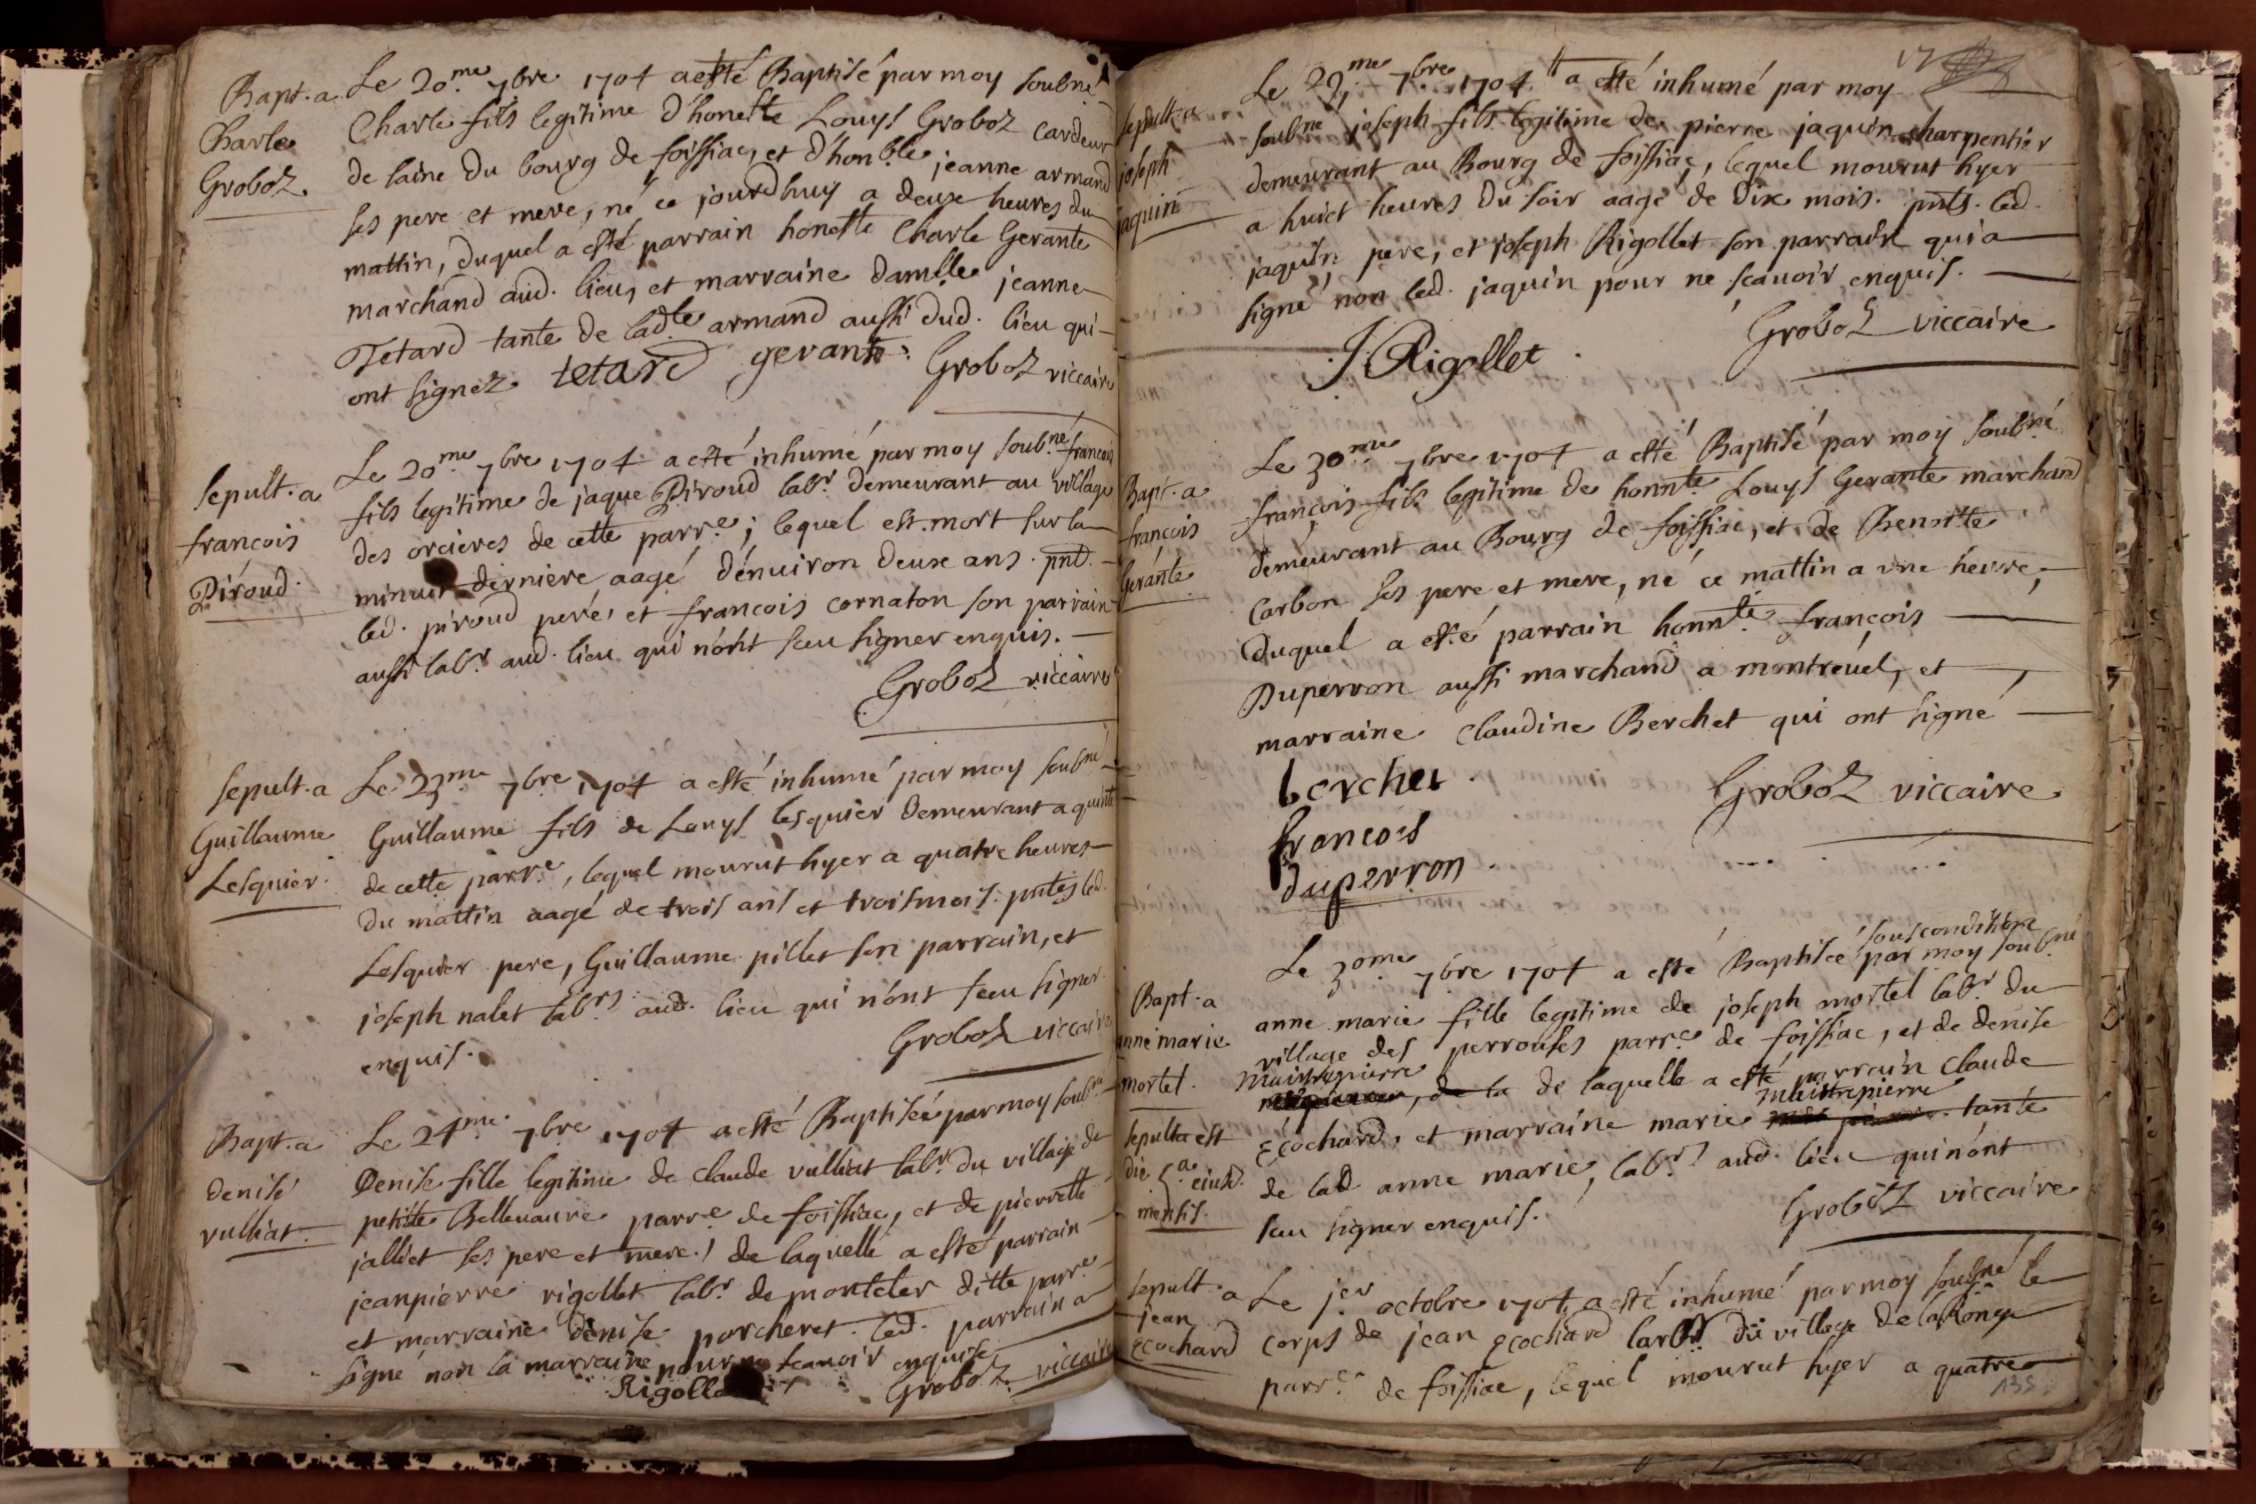 Bapt. a
Charle
Groboz.
Le 20.me 7bre 1704 a esté Baptisé par moy soubné
Charle fils legitime d'honeste Louys Groboz cardeur
de laine du bourg de foissiac, et d'honble jeanne armand
ses pere et mere, né ce jourdhuy a deux heures du
mattin, duquel a esté parrain honeste Charle Gerante
marchand aud. lieu, et marraine damlle jeanne
Tetard tante de ladte armand aussi dud. lieu qui
ont signez. tetard gerante. Groboz viccaire
Sepult. a
francois
Piroud.
Le 20me 7bre 1704 a esté inhumé par moy soubné francois
fils legitime de jaque Piroud labr demeurant au village
des orcieres de cette parre; lequel est mort sur la
minuit derniere aagé d'énuiron deux ans. pnt.
led. piroud pere, et francois cornaton son parrain
aussi labr aud. lieu qui n'ont sceu signer enquis.
Groboz viccaire
Sepult. a
Guillaume
Lesquier.
Le 23me 7bre 1704 a esté inhumé par moy soubné
Guillaume fils de Louys lesquier demeurant a
de cette parre, lequel mourut hyer a quatre heures
du mattin aagé de trois ans et trois mois. pntes led.
Lesquier pere, Guillaume pillet son parrain, et
joseph nalet labrs aud. lieu qui n'ont sceu signer
enquis. Groboz viccaire
Bapt. a
denise
vulliat.
Le 24me 7bre 1704 a esté Baptisée par moy soubné
Denise fille legitime de claude vulliat labr du village de
petitte Belleuaure parre de foissiac, et de pierrette
jalliet ses pere et mere; de laquelle a esté parrain
jeanpierre rigollet labr de montcler ditte parre
et marraine denise porcheret. led. parrain a
signé non la marraine pour ne scauoir enquise
Rigollet Groboz viccaire
17
sepult. a
joseph
jaquin
Le 29me 7bre 1704 a esté inhumé par moy
soubné joseph fils legitime de pierre jaquin charpentier
demeurant au Bourg de foissiac, lequel mourut hyer
a huict heures du soir aagé de dix mois. pnts. led.
jaquin pere, et joseph Rigollet son parrain qui a
signé non led. jaquin pour ne scauoir enquis.
J. Rigollet Groboz viccaire
Bapt. a
françois
Gerante
Le 30me 7bre 1704 a esté Baptisé par moy soubné
françois fils legitime de honnte Louys Gerante marchand
demeurant au Bourg de foissiac, et de Benoitte
Carbon ses pere et mere, né ce mattin a vne heure,
duquel a esté parrain honnte françois
Duperron aussi marchand a montreuel, et
marraine Claudine Berchet qui ont signé
berchet Groboz viccaire
francois
duperron
Bapt. a
anne marie
mortel.
sepulta est
die a eiusd.
mensis.
sous condition
Le 30me 7bre 1704 a esté Baptisée par moy soubné
anne marie fille legitime de joseph mortel labr du
village des perrouses parre de foissiac, et de denise
maistrepierre, de la de laquelle a esté parrain Claude
Ecochard, et marraine marie maistrepierre tante
de lad. anne marie, labrs aud. lieu qui n'ont
sceu signer enquis. Groboz viccaire
sepult. a
jean
Ecochard
Le jer octobre 1704 a esté inhumé par moy soubné le
corps de jean Ecochard labr du village de la Ronge
parre de foissiac, lequel mourut hyer a quatre
135